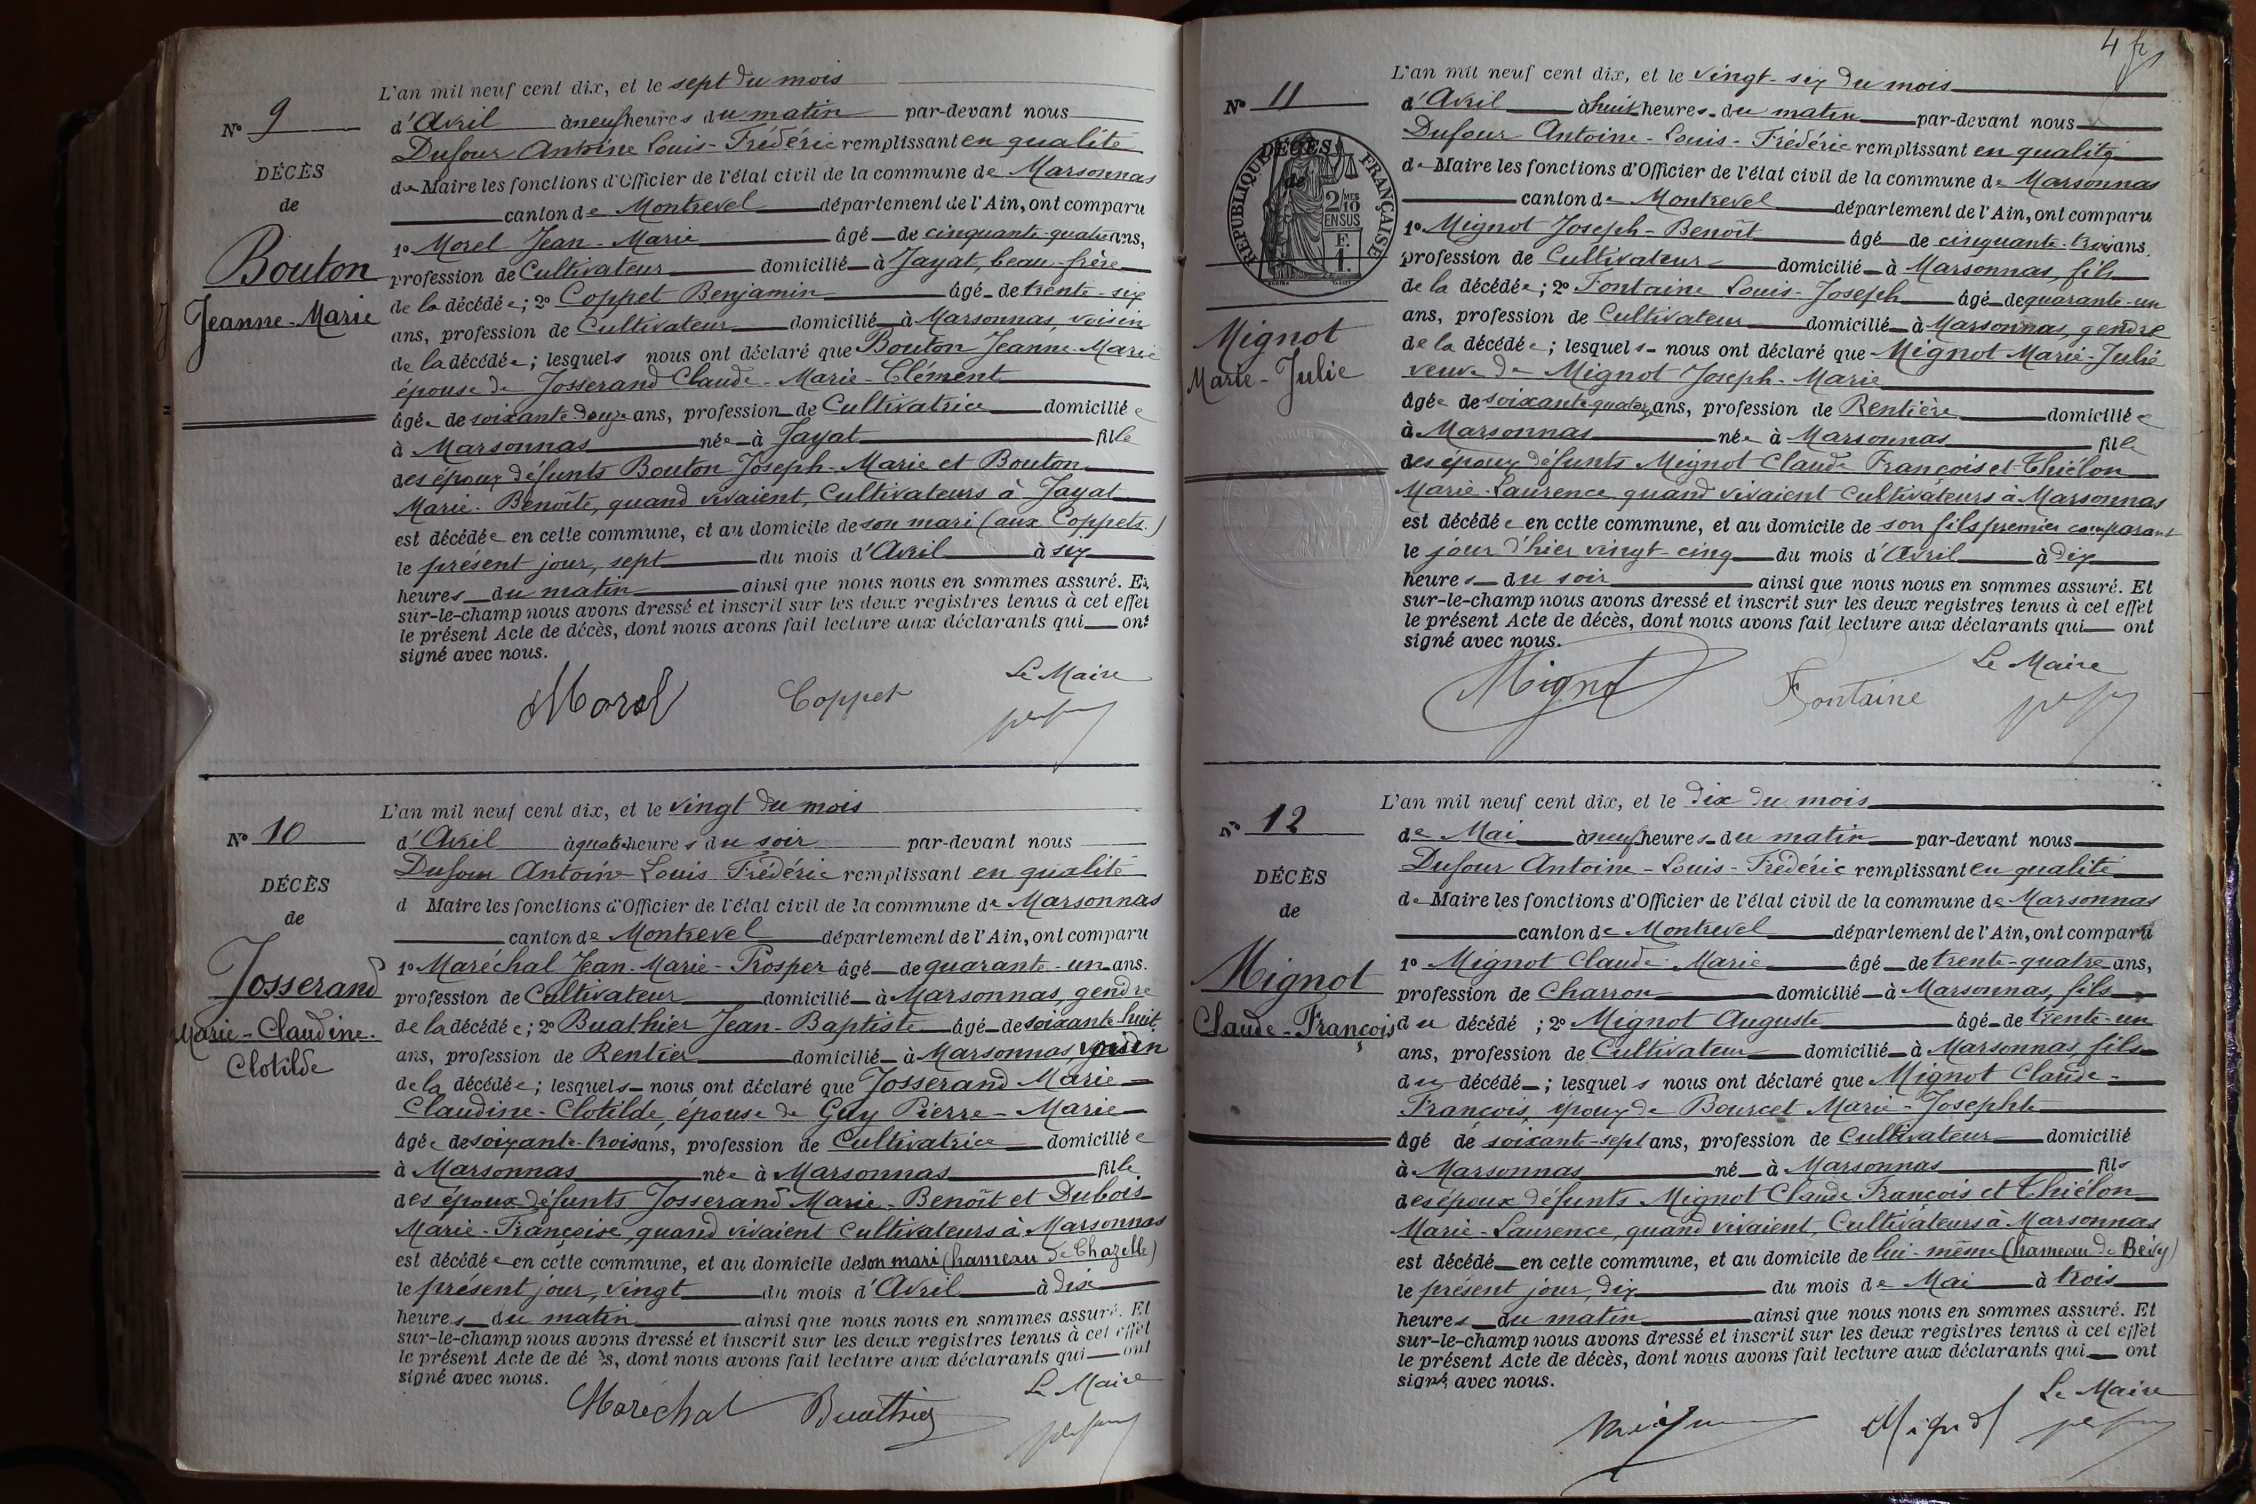 N° 9
DÉCÈS
de
Bouton
Jeanne-Marie
L'an mil neuf cent dix, et le sept du mois
d'Avril à neuf heures du matin par-devant nous
Dufour Antoine Louis-Frédéric remplissant en qualité
de Maire les fonctions d'Officier de l'état civil de la commune de Marsonnas
canton de Montrevel département de l'Ain, ont comparu
1° Morel Jean-Marie âgé de cinquante-quatre ans,
profession de Cultivateur domicilié à Jayat, beau-frère
de la décédée; 2° Coppet Benjamin âgé de trente-six
ans, profession de Cultivateur domicilié à Marsonnas, voisin
de la décédée; lesquels nous ont déclaré que Bouton Jeanne-Marie
épouse de Josserand Claude-Marie-Clément
âgée de soixante douze ans, profession de Cultivatrice domiciliée
à Marsonnas née à Jayat fille
des époux défunts Bouton Joseph-Marie et Bouton
Marie-Benoîte, quand vivaient, Cultivateurs à Jayat
est décédée en cette commune, et au domicile de son mari (aux Coppets)
le présent jour, sept du mois d'Avril à six
heures du matin ainsi que nous nous en sommes assuré. Et
sur-le-champ nous avons dressé et inscrit sur les deux registres tenus à cet effet
le présent Acte de décès, dont nous avons fait lecture aux déclarants qui ont
signé avec nous.
Le Maire
Morel Coppet
N° 10
DÉCÈS
de
Josserand
Marie-Claudine-
Clotilde
L'an mil neuf cent dix, et le vingt du mois
d'Avril à quatre heures du soir par-devant nous
Dufour Antoine Louis Frédéric remplissant en qualité
d Maire les fonctions d'Officier de l'état civil de la commune de Marsonnas
canton de Montrevel département de l'Ain, ont comparu
1° Maréchal Jean-Marie-Prosper âgé de quarante-un ans.
profession de Cultivateur domicilié à Marsonnas, gendre
de la décédée; 2° Buathier Jean-Baptiste âgé de soixante huit
ans, profession de Rentier domicilié à Marsonnas, voisin
de la décédée; lesquels nous ont déclaré que Josserand Marie-
Claudine-Clotilde, épouse de Guy Pierre-Marie
âgée de soixante-trois ans, profession de Cultivatrice domiciliée
à Marsonnas née à Marsonnas fille
des époux défunts Josserand Marie-Benoît et Dubois
Marie-Françoise, quand vivaient Cultivateurs à Marsonnas
est décédée en cette commune, et au domicile de son mari (hameau de Chazelle)
le présent jour, vingt du mois d'Avril à dix
heures du matin ainsi que nous nous en sommes assuré. Et
sur-le-champ nous avons dressé et inscrit sur les deux registres tenus à cet effet
le présent Acte de décès, dont nous avons fait lecture aux déclarants qui ont
signé avec nous.
Le Maire
Maréchal Buathier
4 f
N° 11
DÉCÈS
de
RÉPUBLIQUE FRANÇAISE
2/10 MES
EN SUS
F.
1.
Mignot
Marie-Julie
L'an mil neuf cent dix, et le vingt-six du mois
d'Avril à huit heures du matin par-devant nous
Dufour Antoine-Louis-Frédéric remplissant en qualité
de Maire les fonctions d'Officier de l'état civil de la commune de Marsonnas
canton de Montrevel département de l'Ain, ont comparu
1° Mignot Joseph-Benoît âgé de cinquante-trois ans,
profession de Cultivateur domicilié à Marsonnas, fils
de la décédée; 2° Fontaine Louis-Joseph âgé de quarante-un
ans, profession de Cultivateur domicilié à Marsonnas, gendre
de la décédée; lesquels nous ont déclaré que Mignot Marie-Julie
veuve de Mignot Joseph-Marie
âgée de soixante quatorze ans, profession de Rentière domiciliée
à Marsonnas née à Marsonnas fille
des époux défunts Mignot Claude François et Thiélon
Marie-Laurence quand vivaient Cultivateurs à Marsonnas
est décédée en cette commune, et au domicile de son fils premier comparant
le jour d'hier vingt-cinq du mois d'Avril à dix
heures du soir ainsi que nous nous en sommes assuré. Et
sur-le-champ nous avons dressé et inscrit sur les deux registres tenus à cet effet
le présent Acte de décès, dont nous avons fait lecture aux déclarants qui ont
signé avec nous.
Le Maire
Mignot Fontaine
N° 12
DÉCÈS
de
Mignot
Claude-François
L'an mil neuf cent dix, et le dix du mois
de Mai à neuf heures du matin par-devant nous
Dufour Antoine-Louis-Frédéric remplissant en qualité
de Maire les fonctions d'Officier de l'état civil de la commune de Marsonnas
canton de Montrevel département de l'Ain, ont comparu
1° Mignot Claude Marie âgé de trente-quatre ans,
profession de Charron domicilié à Marsonnas, fils
du décédé; 2° Mignot Auguste âgé de trente-un
ans, profession de Cultivateur domicilié à Marsonnas fils
du décédé; lesquels nous ont déclaré que Mignot Claude-
François, époux de Bourcet Marie-Josephte
âgé de soixante-sept ans, profession de Cultivateur domicilié
à Marsonnas né à Marsonnas fils
des époux défunts Mignot Claude François et Thiélon
Marie-Laurence, quand vivaient, Cultivateurs à Marsonnas
est décédé en cette commune, et au domicile de lui-même (hameau de Bévy)
le présent jour, dix du mois de Mai à trois
heures du matin ainsi que nous nous en sommes assuré. Et
sur-le-champ nous avons dressé et inscrit sur les deux registres tenus à cet effet
le présent Acte de décès, dont nous avons fait lecture aux déclarants qui ont
signé avec nous.
Le Maire
Mignot